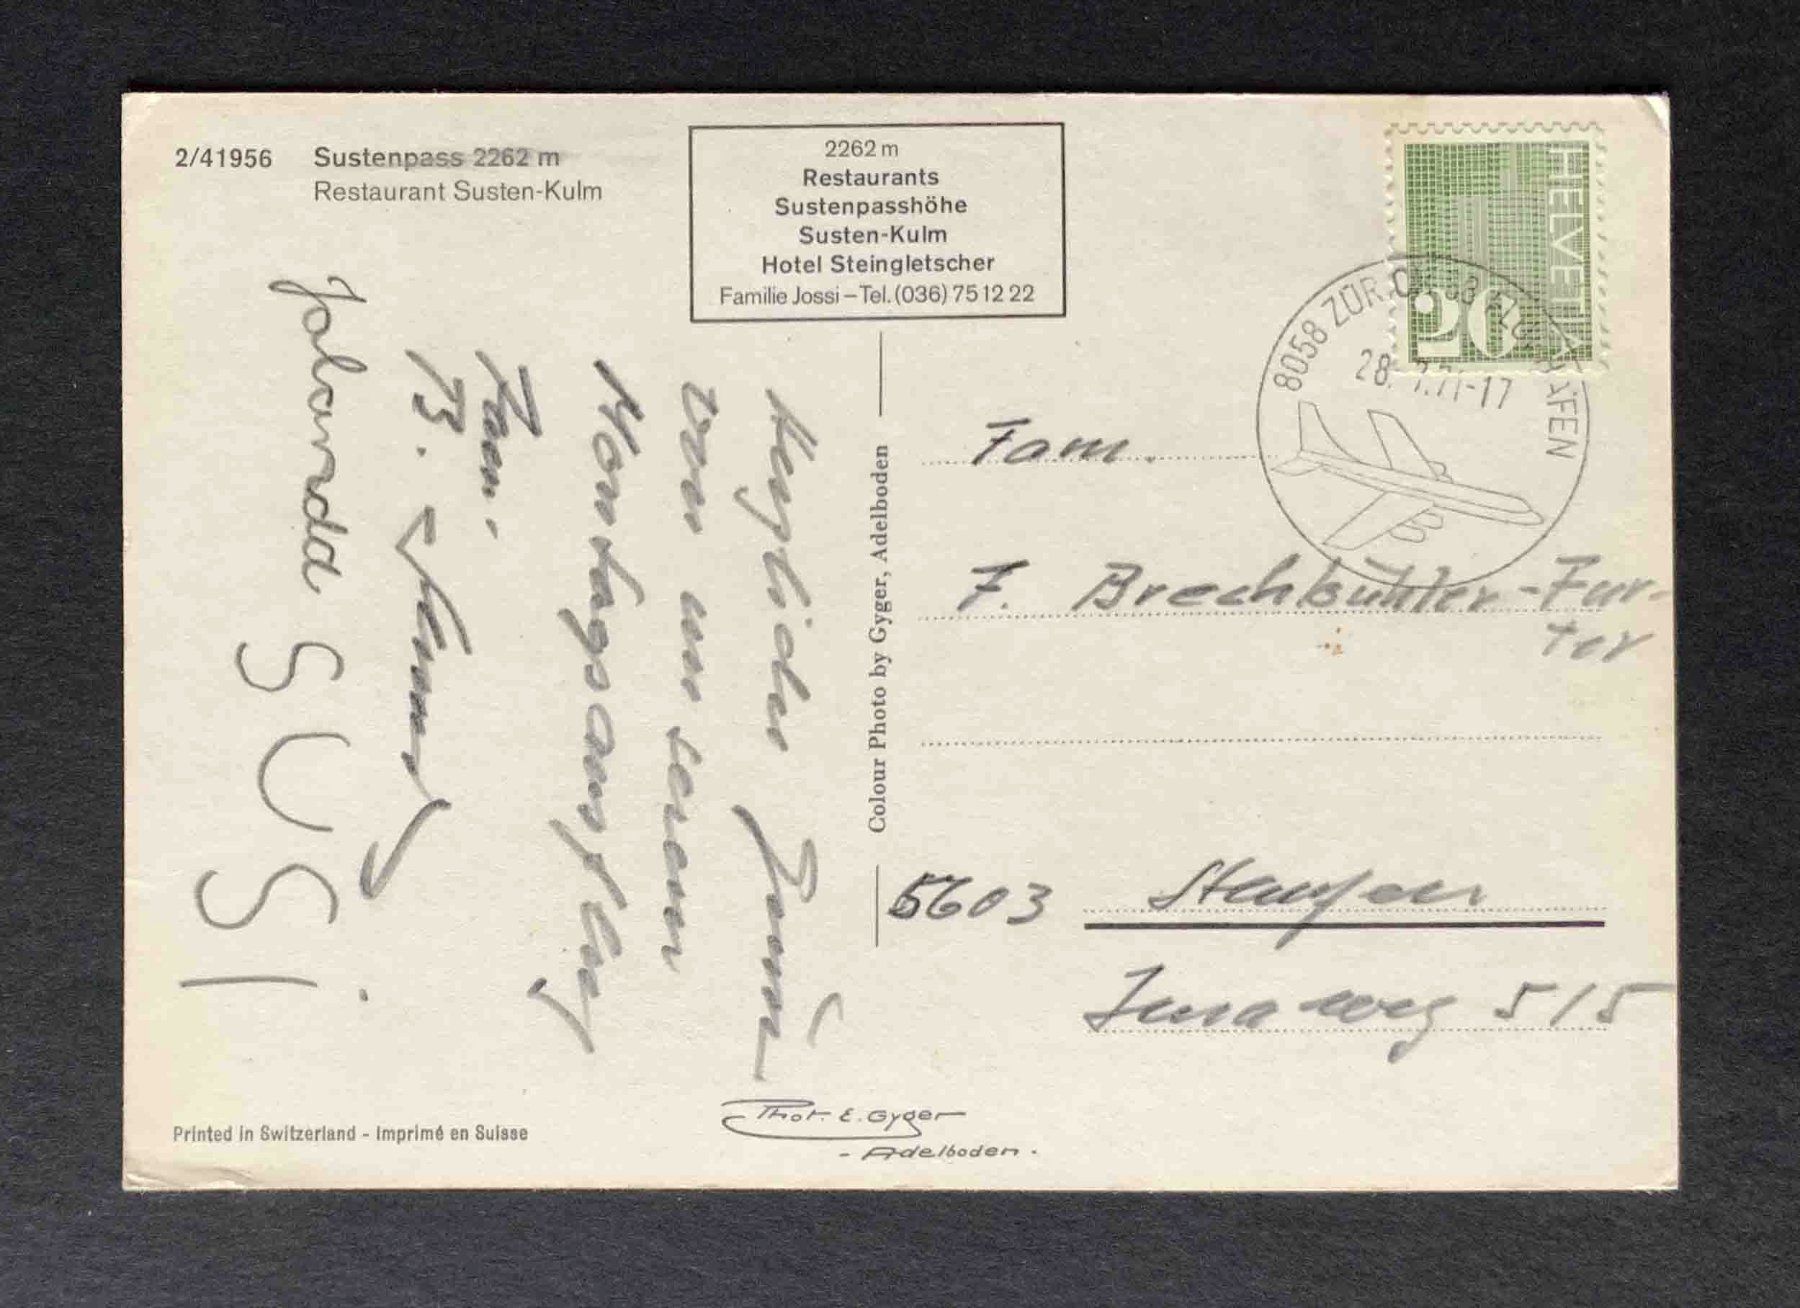 2/41956 Sustenpass 2262 m
Restaurant Susten-Kulm
2262 m
Restaurants
Sustenpasshöhe
Susten-Kulm
Hotel Steingletscher
Familie Jossi – Tel. (036) 75 12 22
HELVETIA
20
8058 ZÜRICH 58 FLUGHAFEN
28. 71-17
Herzliche
von unserem
Montagsausflug
Fam.
B.
Jolanda
SUSi
Colour Photo by Gyger, Adelboden
Fam.
F. Brechbühler-Fur-
ter
5603 Staufen
Juraweg 515
Printed in Switzerland - Imprimé en Suisse
Phot. E. Gyger
- Adelboden .